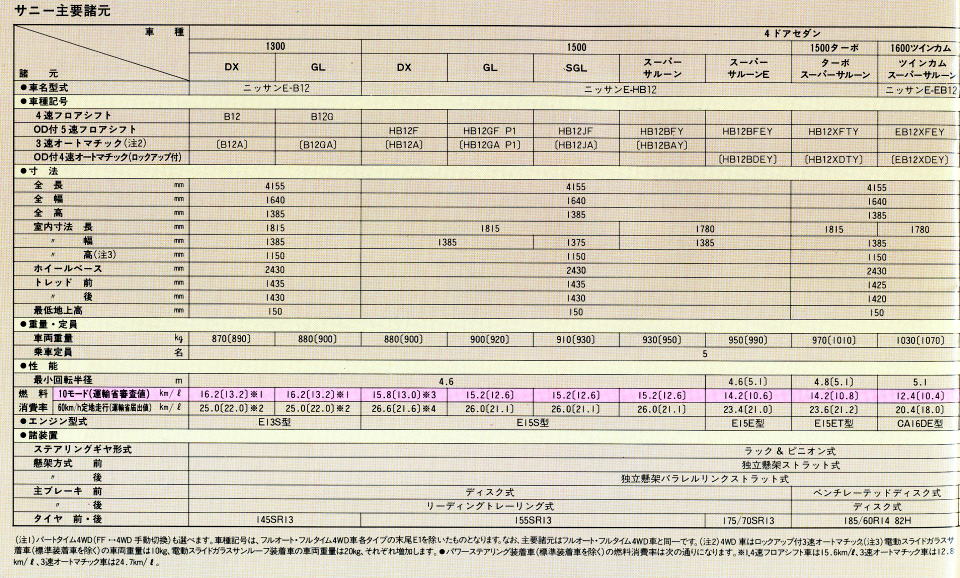 サニー主要諸元
車種 4ドアセダン
1300 1500 1500ターボ 1600ツインカム
諸元 DX GL DX GL SGL スーパーサルーン スーパーサルーンE ターボスーパーサルーン ツインカムスーパーサルーン
●車名型式 ニッサンE-B12 ニッサンE-HB12 ニッサンE-EB12
●車種記号
4速フロアシフト B12 B12G
OD付5速フロアシフト HB12F HB12GF P1 HB12JF HB12BFY HB12BFEY HB12XFTY EB12XFEY
3速オートマチック(注2) 〔B12A〕 〔B12GA〕 〔HB12A〕 〔HB12GA P1〕 〔HB12JA〕 〔HB12BAY〕
OD付4速オートマチック(ロックアップ付) 〔HB12BDEY〕 〔HB12XDTY〕 〔EB12XDEY〕
●寸法
全長 mm 4155 4155 4155
全幅 mm 1640 1640 1640
全高 mm 1385 1385 1385
室内寸法 長 mm 1815 1815 1780 1815 1780
〃 幅 mm 1385 1385 1375 1385 1385
〃 高(注3) mm 1150 1150 1150
ホイールベース mm 2430 2430 2430
トレッド 前 mm 1435 1435 1425
〃 後 mm 1430 1430 1420
最低地上高 mm 150 150 150
●重量・定員
車両重量 kg 870〔890〕 880〔900〕 880〔900〕 900〔920〕 910〔930〕 930〔950〕 950〔990〕 970〔1010〕 1030〔1070〕
乗車定員 名 5
●性能
最小回転半径 m 4.6 4.6〔5.1〕 4.8〔5.1〕 5.1
燃料 10モード(運輸省審査値) km/ℓ 16.2〔13.2〕※1 16.2〔13.2〕※1 15.8〔13.0〕※3 15.2〔12.6〕 15.2〔12.6〕 15.2〔12.6〕 14.2〔10.6〕 14.2〔10.8〕 12.4〔10.4〕
消費率 60km/h定地走行(運輸省届出値) km/ℓ 25.0〔22.0〕※2 25.0〔22.0〕※2 26.6〔21.6〕※4 26.0〔21.1〕 26.0〔21.1〕 26.0〔21.1〕 23.4〔21.0〕 23.6〔21.2〕 20.4〔18.0〕
●エンジン型式 E13S型 E15S型 E15E型 E15ET型 CA16DE型
●諸装置
ステアリングギヤ形式 ラック & ピニオン式
懸架方式 前 独立懸架ストラット式
〃 後 独立懸架パラレルリンクストラット式
主ブレーキ 前 ディスク式 ベンチレーテッドディスク式
〃 後 リーディングトレーリング式 ディスク式
タイヤ 前・後 145SR13 155SR13 175/70SR13 185/60R14 82H
(注1)パートタイム4WD(FF↔4WD 手動切換)も選べます。車種記号は、フルオート・フルタイム4WD車各タイプの末尾E1を除いたものとなります。なお、主要諸元はフルオート・フルタイム4WD車と同一です。(注2)4WD車はロックアップ付3速オートマチック(注3)電動スライドガラスサ
着車(標準装着車を除く)の車両重量は10kg、電動スライドガラスサンルーフ装着車の車両重量は20kg、それぞれ増加します。●パワーステアリング装着車(標準装着車を除く)の燃料消費率は次の通りになります。※1,4速フロアシフト車は15.6km/ℓ、3速オートマチック車は12.8
km/ℓ、3速オートマチック車は24.7km/ℓ。